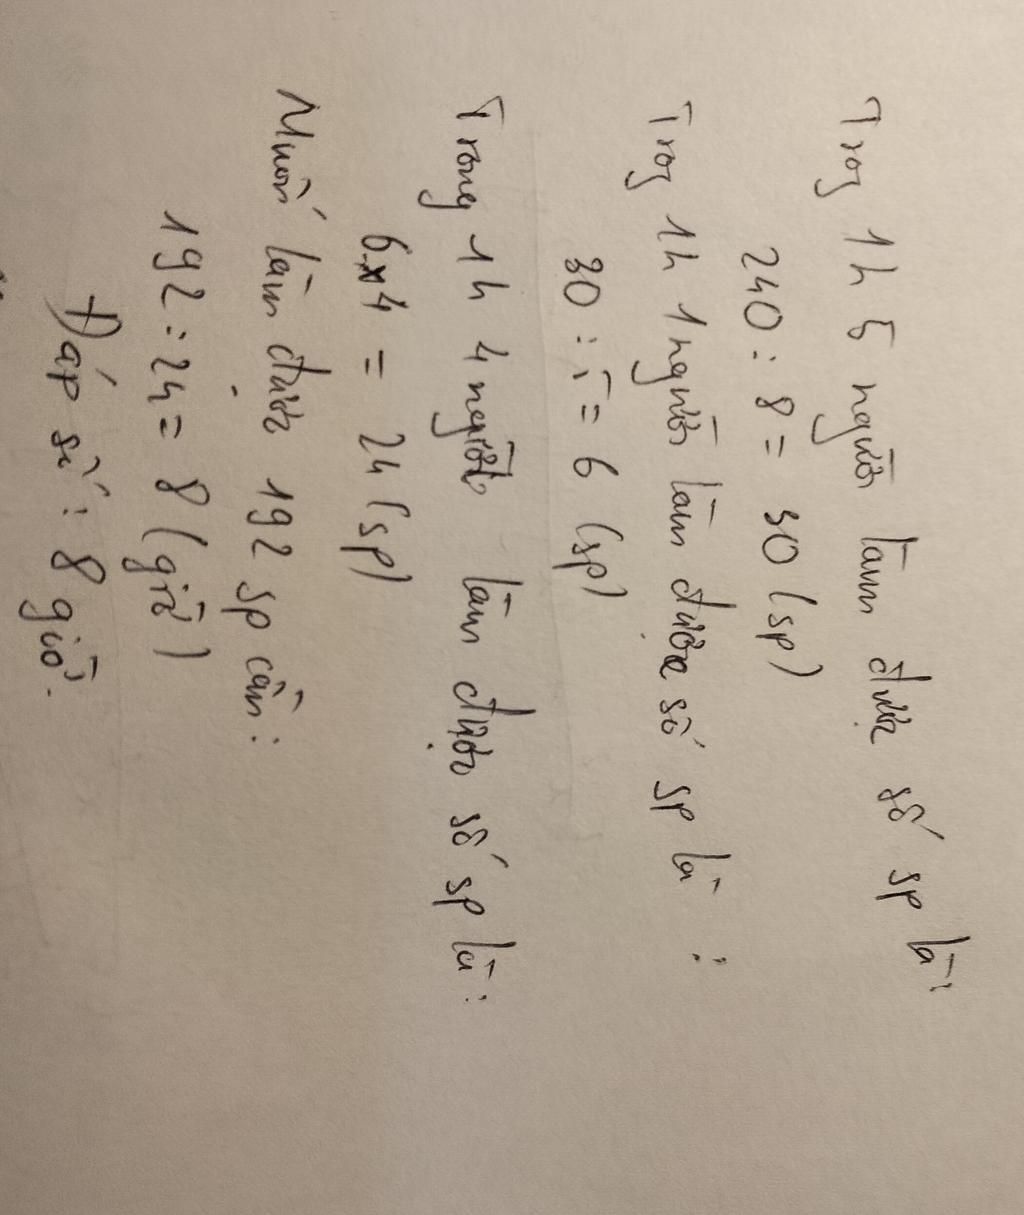 Trog 1h 5 người làm được số sp là:
240 : 8 = 30 (sp)
Trog 1h 1 người làm được số sp là :
30 : 5 = 6 (sp)
Trong 1h 4 người làm được số sp là:
6 x 4 = 24 (sp)
Muốn làm được 192 sp cần :
192 : 24 = 8 (giờ)
Đáp số : 8 giờ.